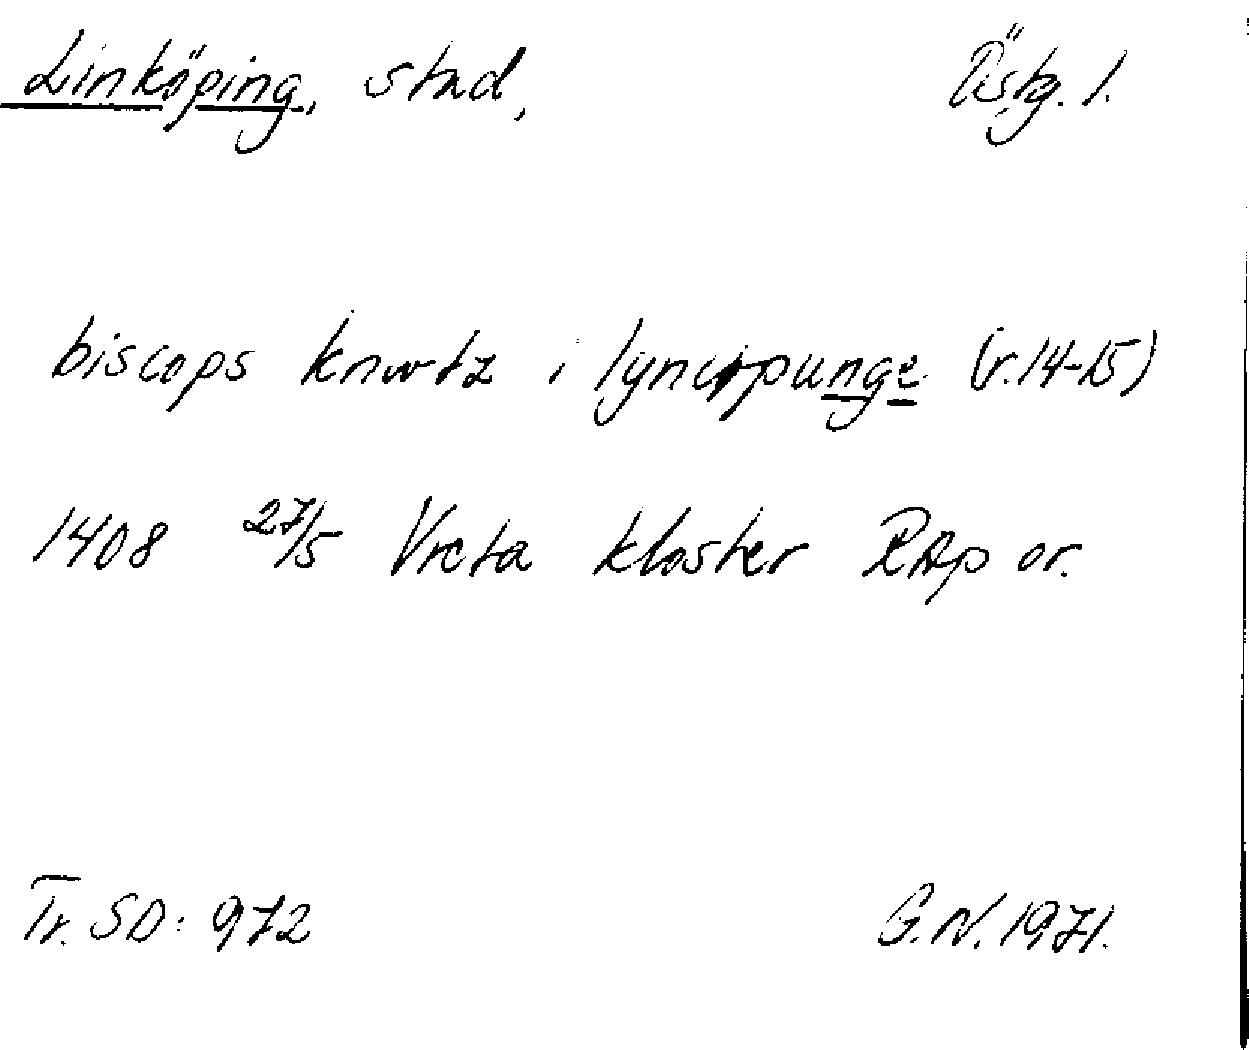 Linköping, stad, Östg. l.
biscops knwtz i lyncøpunge (r.14-15)
1408 27/5 Vreta kloster RAp or.
Tr. SD: 972 G.N. 1971.